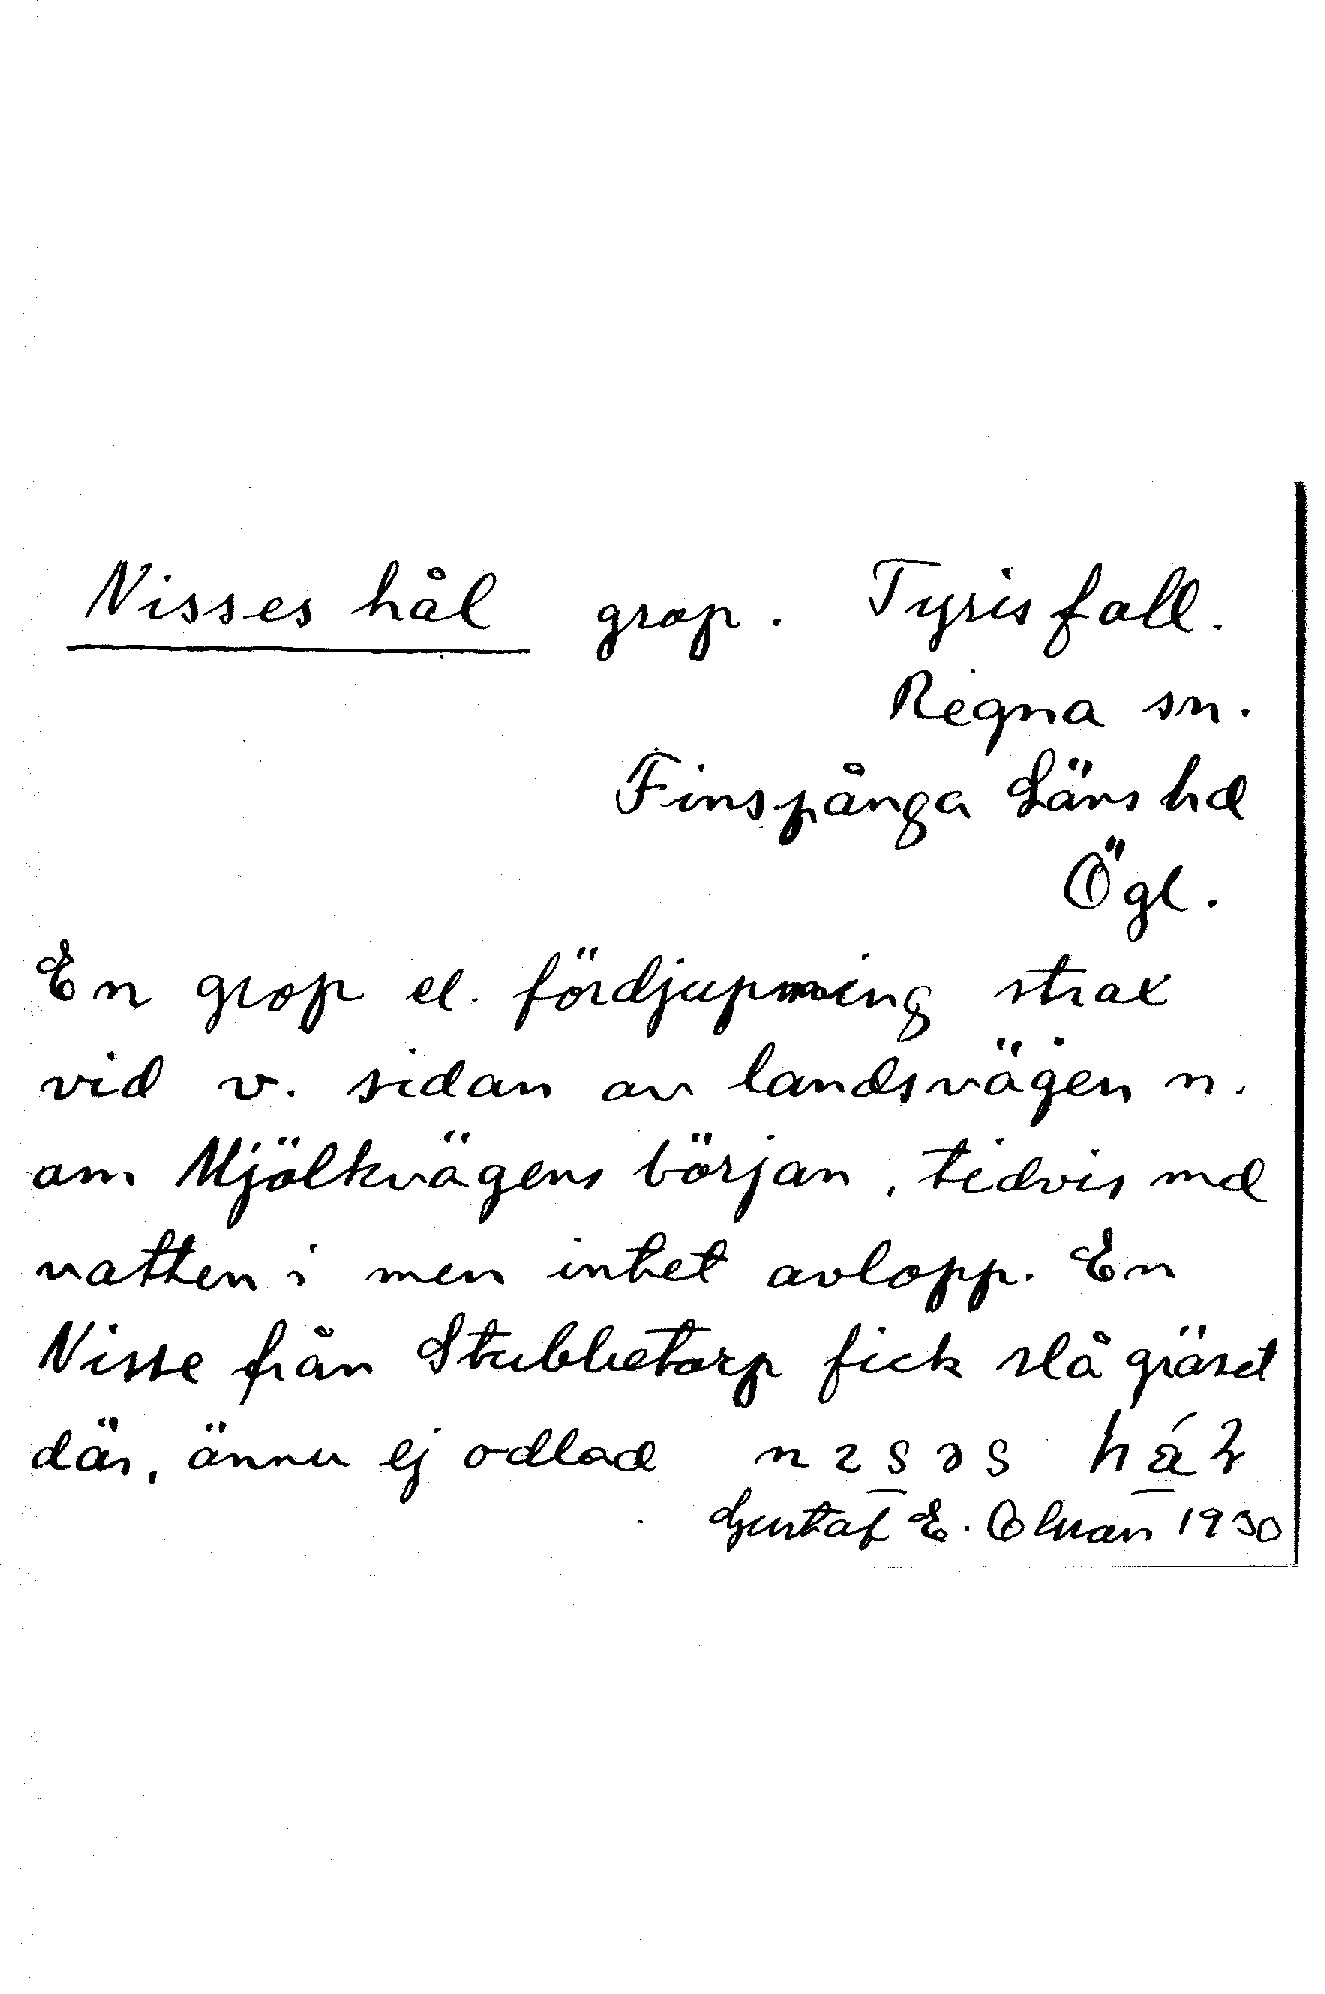 Nisses hål grop. Tyrisfall.
Regna sn.
Finspånga Läns hd
Ögl.
En grop el. fördjupning strax
vid v. sidan av landsvägen n.
om Mjölkvägens början, tidvis md
vatten i men intet avlopp. En
Nisse från Stubbetorp fick slå gräset
där, ännu ej odlad
Gustaf E. Olsson 1930